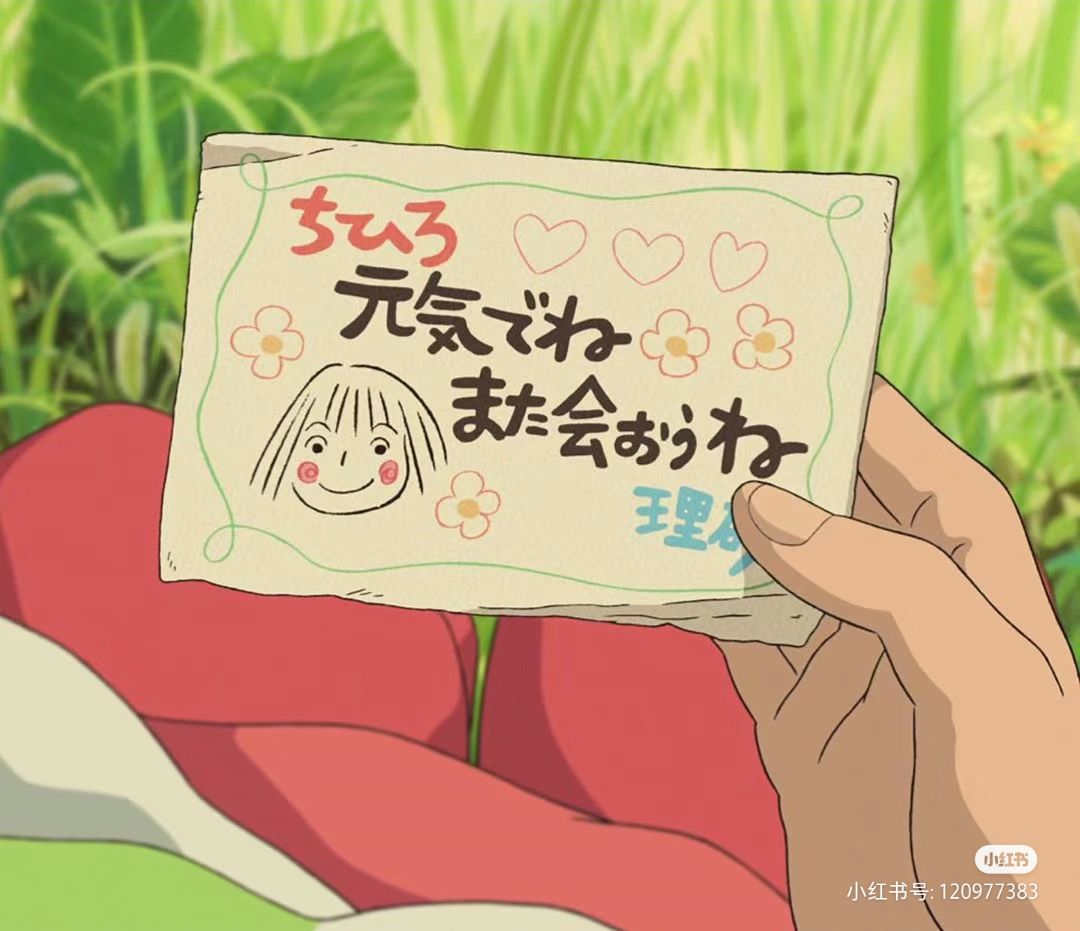 ちひろ
元気でね
また会おうね
理
小红书
小红书号: 120977383